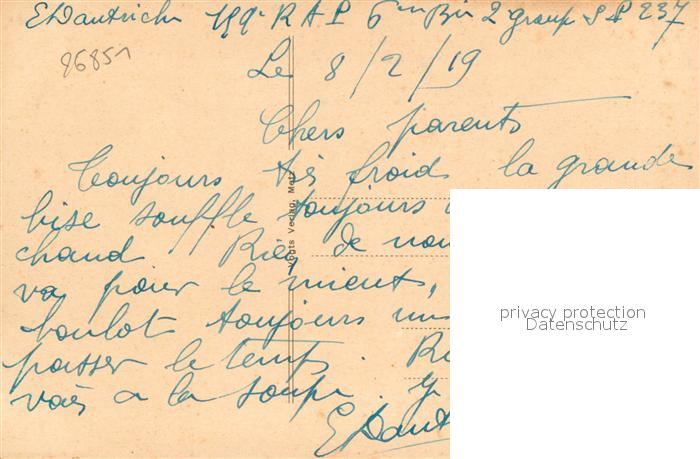 E Dautriche 199e R A P 6me Bie 2e group S P 237
86851
Le 8/2/19
Chers parents
Toujours très froid la grande
bise souffle toujours
chaud Rien de nou
va pour le mieux,
boulot toujours
passer le temps. Ri
vais a la soupe. Y
E Daut
Vogts Verlag, Metz
privacy protection
Datenschutz